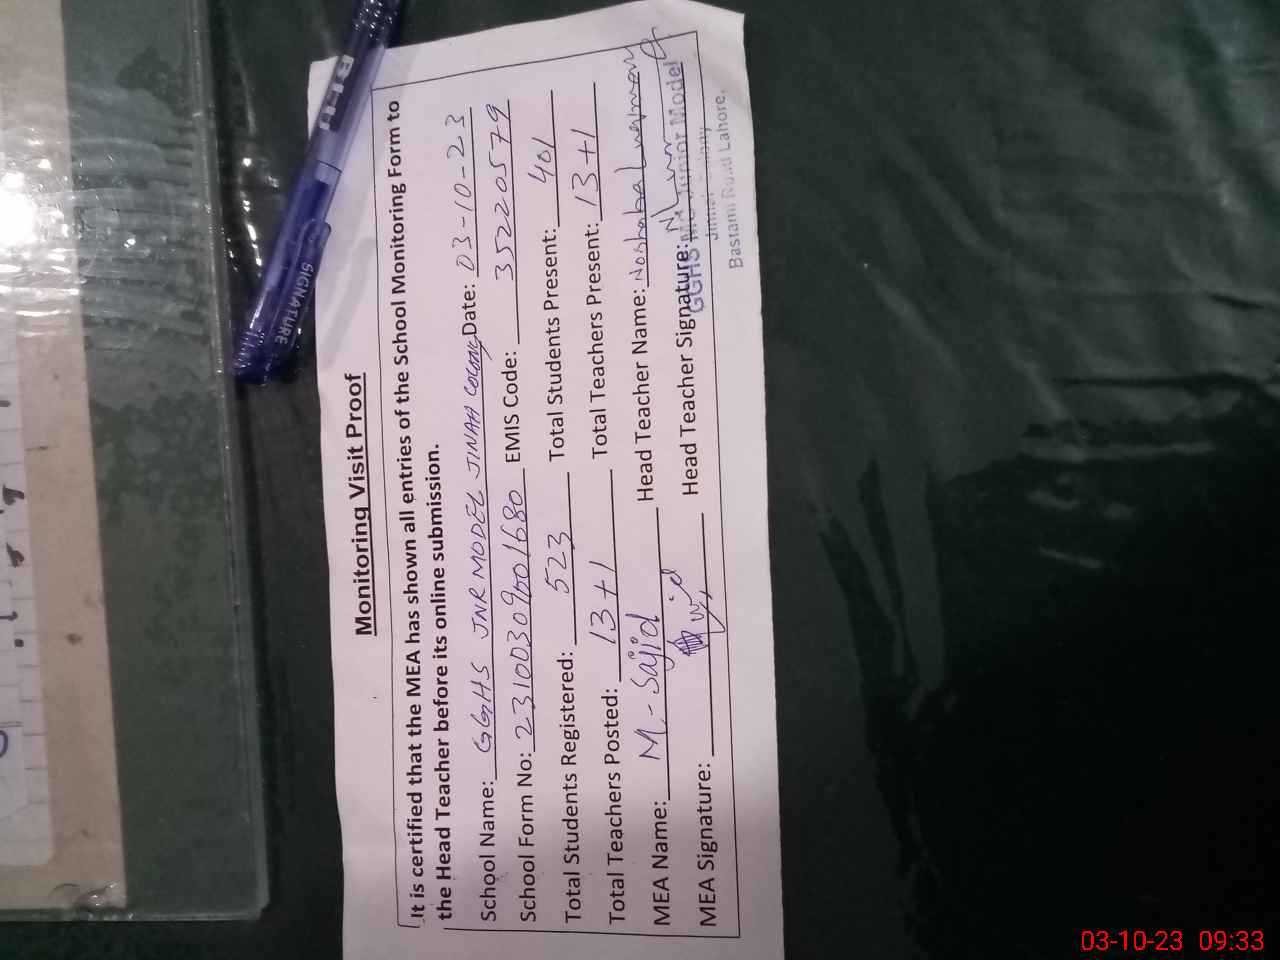 Monitoring Visit Proof
It is certified that the MEA has shown all entries of the School Monitoring Form to
the Head Teacher before its online submission.
School Name: GGHS JNR MODEL JINAH COLONY Date: 03-10-23
School Form No: 23100309001680 EMIS Code: 35220579
Total Students Registered: 523 Total Students Present: 401
Total Teachers Posted: 13+1 Total Teachers Present: 13+1
MEA Name: M. Sajid Head Teacher Name: Noshaba
MEA Signature: Head Teacher Signature:
GGHS MC Junior Model
Bastami Road Lahore.
BLU
SIGNATURE
03-10-23 09:33